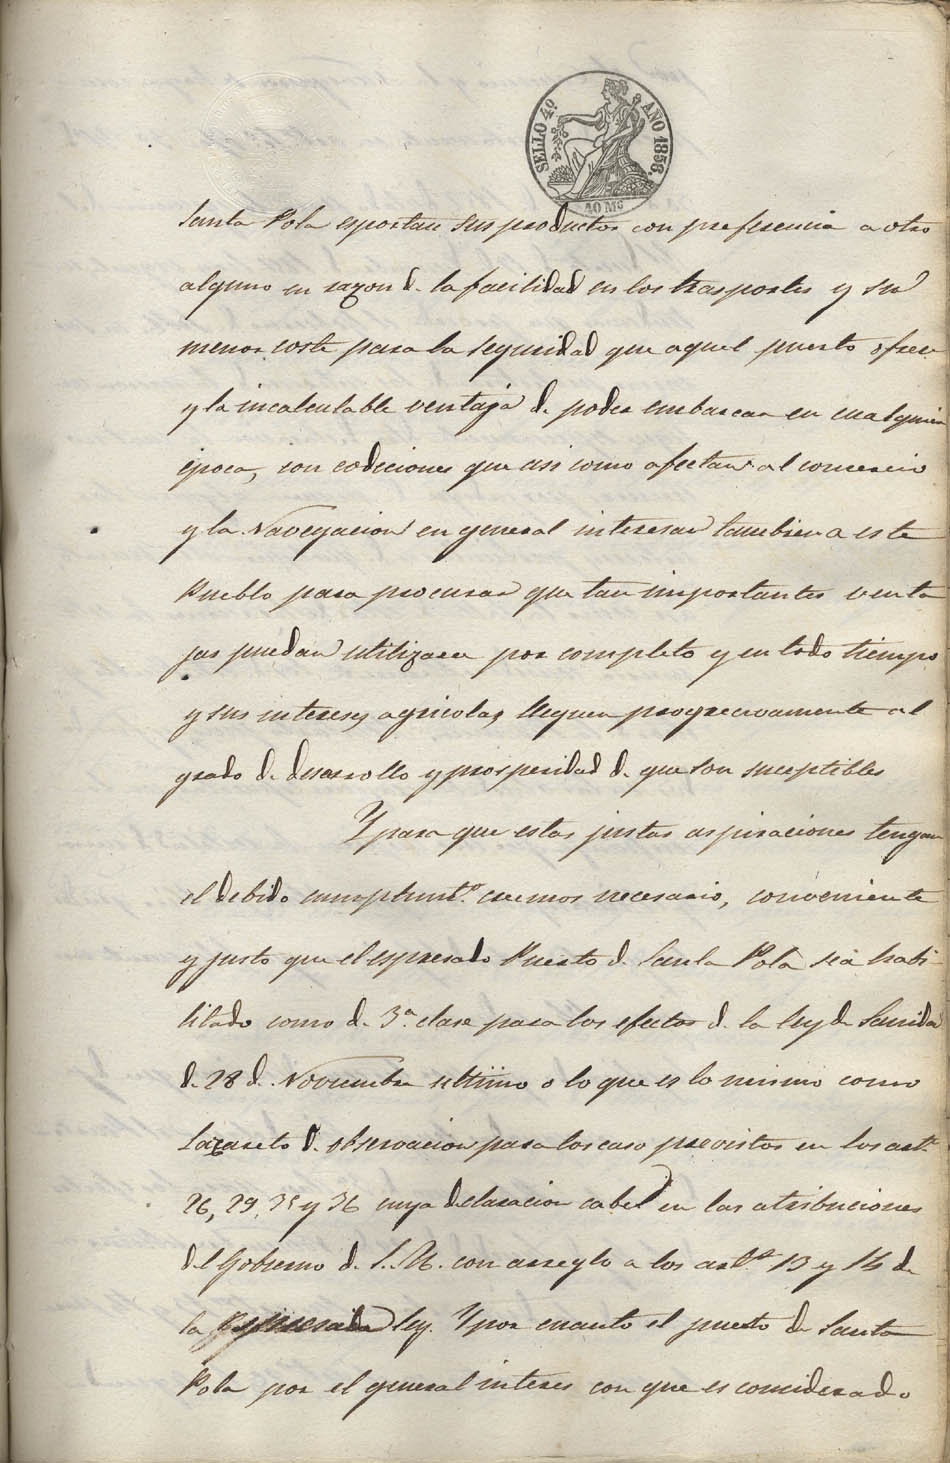 SELLO 4º. AÑO 1856.
40 Ms
Santa Pola esportan sus productos con preferencia a otro
alguno en razon d. la facilidad en los trasportes y su
menor coste para la seguridad que aquel puerto ofrece
y la incalculable ventaja d. poder embarcar en cualquiera
epoca, con codiciones que asi como afectan al comercio
y la Navegacion en general interesan tambien a este
Pueblo para procurar que tan importantes venta
jas puedan utilizarse por completo y en todo tiempo
y sus intereses agricolas lleguen progrecivamente al
grado d. desarrollo y prosperidad d. que son suceptibles
Y para que estas justas aspiraciones tengan
el debido cumplimt.º creemos necesario, conveniente
y justo que el espresado Puerto d. Santa Pola sea habi
litado como d. 3.ª clase para los efectos d. la ley d. Sanidad
d. 28 d. Noviembre ultimo o lo que es lo mismo como
Lazareto d. observacion para los caso previstos en los art.s
26, 29, 35 y 36 cuya declaracion cabe en las atribuciones
del Gobierno d. S. M. con arreglo a los art.s 13 y 14 de
la espresada ley. Y por cuanto el puerto de Santa
Pola por el general interes con que es considerado